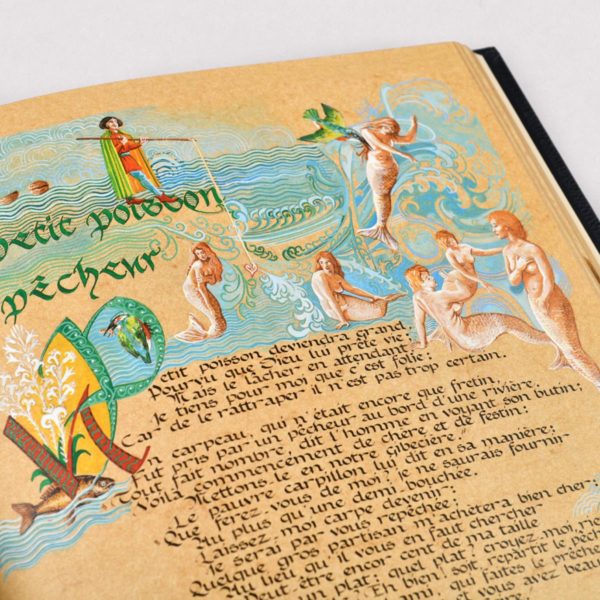 petit poisson
pêcheur
Petit poisson deviendra grand,
Pourvu que Dieu lui prête vie;
Mais le lâcher en attendant,
Je tiens pour moi que c'est folie:
Car de le rattraper il n'est pas trop certain.
Un carpeau, qui n'était encore que fretin,
Fut pris par un pêcheur au bord d'une rivière.
Tout fait nombre, dit l'homme en voyant son butin;
Voilà commencement de chère et de festin:
Mettons le en notre gibecière."
Le pauvre carpillon lui dit en sa manière;
"Que ferez vous de moi? je ne saurais fournir
Au plus qu'une demi bouchée.
Laissez moi carpe devenir:
Je serai par vous repêchée;
Quelque gros partisan m'achètera bien cher;
Au lieu qu'il vous en faut chercher
Peut être encor cent de ma taille
un plat: quel plat? croyez moi,
Eh bien! soit, repartit le
ami, qui faites le
vous avez beau